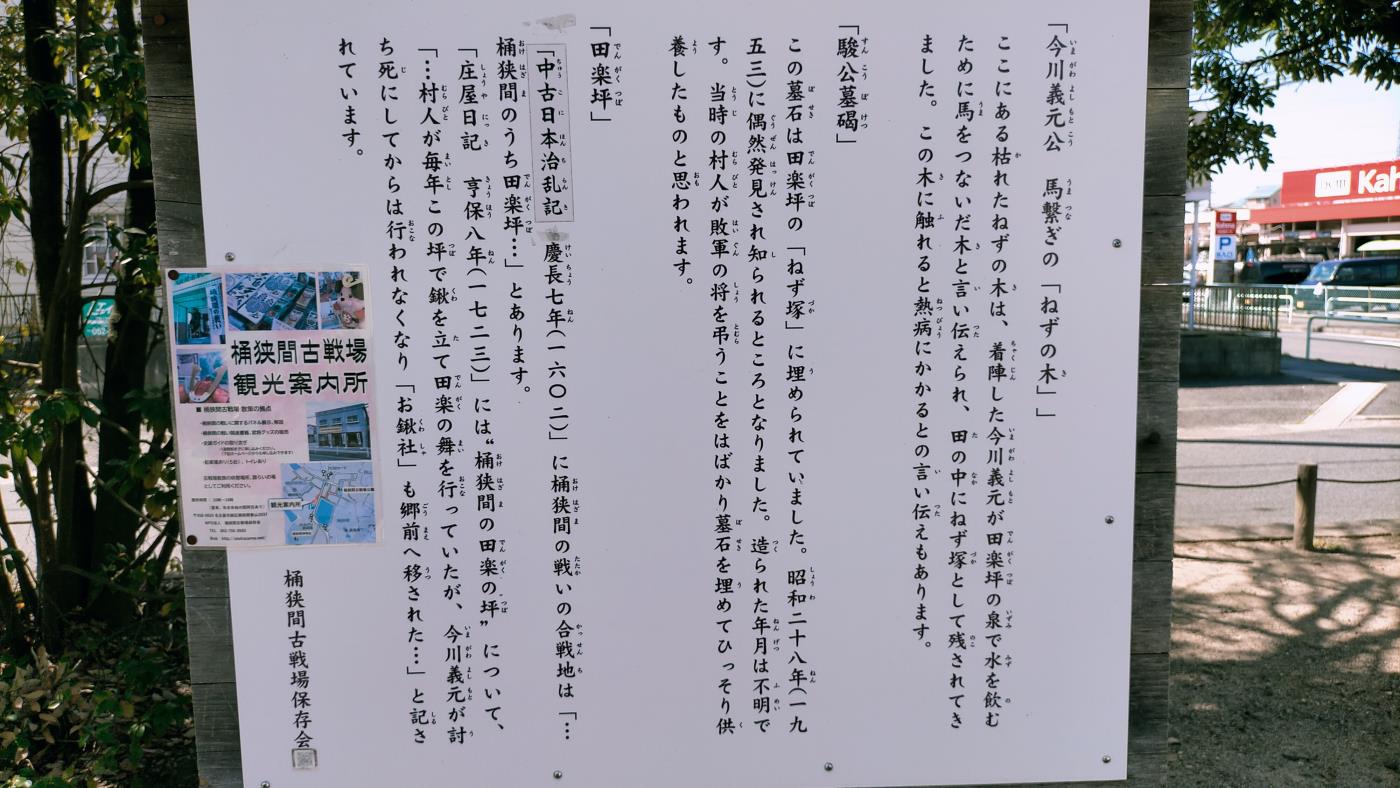 「今川義元公　馬繋ぎの「ねずの木」」
ここにある枯れたねずの木は、着陣した今川義元が田楽坪の泉で水を飲む
ために馬をつないだ木と言い伝えられ、田の中にねず塚として残されてき
ました。この木に触れると熱病にかかるとの言い伝えもあります。
「駿公墓碣」
この墓石は田楽坪の「ねず塚」に埋められていました。昭和二十八年(一九
五三)に偶然発見され知られるところとなりました。造られた年月は不明で
す。当時の村人が敗軍の将を弔うことをはばかり墓石を埋めてひっそり供
養したものと思われます。
「田楽坪」
「中古日本治乱記　慶長七年(一六〇二)」に桶狭間の戦いの合戦地は「…
桶狭間のうち田楽坪…」とあります。
「庄屋日記　享保八年(一七二三)」には“桶狭間の田楽の坪”について、
「…村人が毎年この坪で鍬を立て田楽の舞を行っていたが、今川義元が討
ち死にしてからは行われなくなり「お鍬社」も郷前へ移された…」と記さ
れています。
桶狭間古戦場保存会
桶狭間古戦場
観光案内所
■ 桶狭間古戦場 散策の拠点
観光案内所
Kah
P